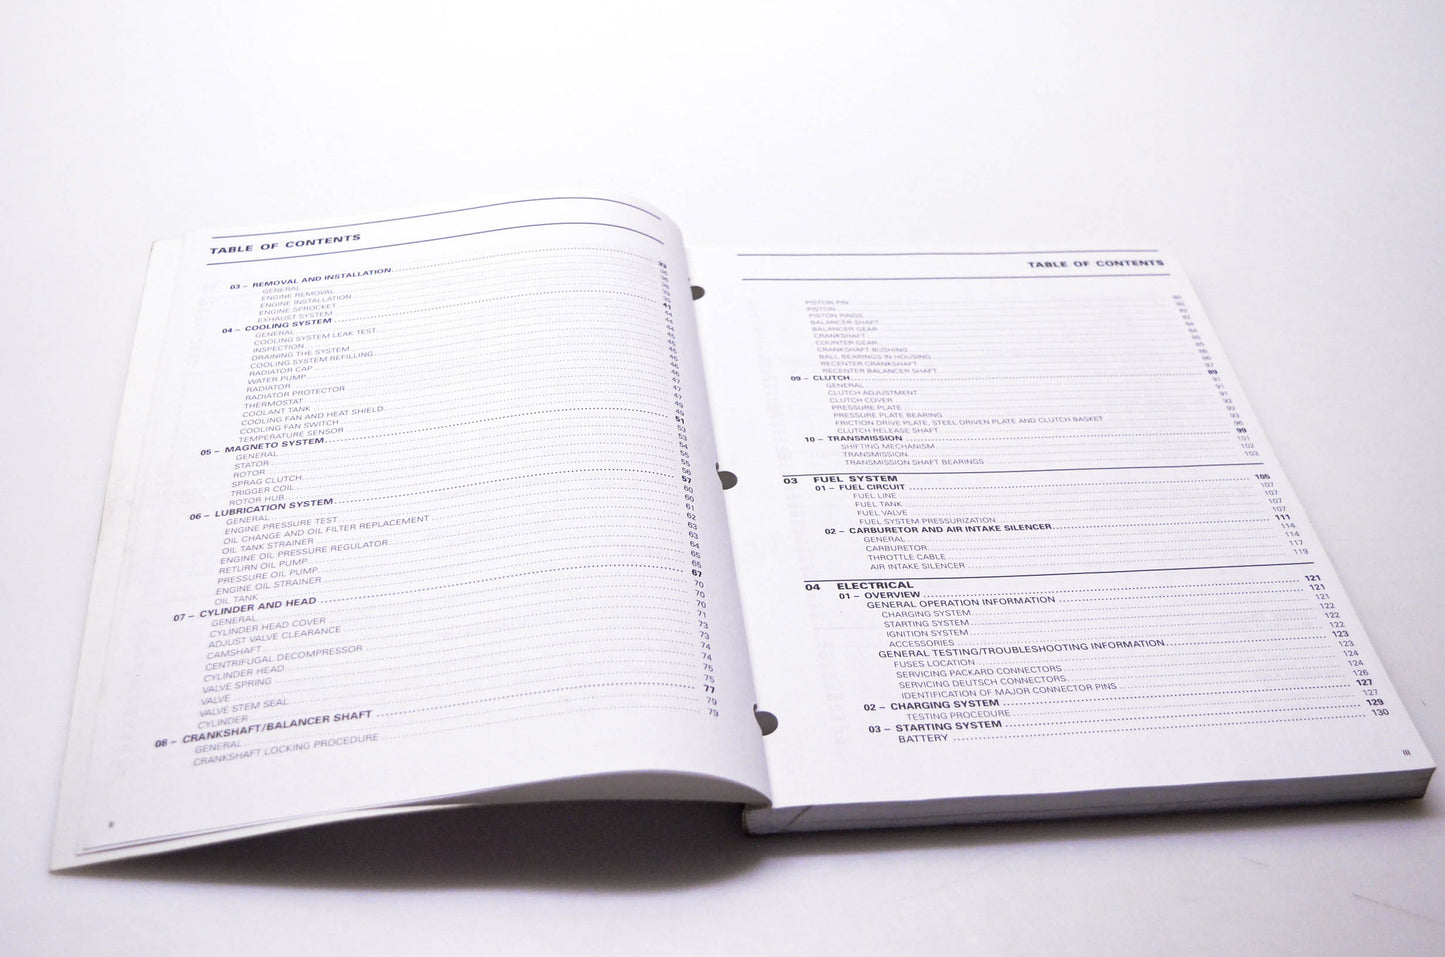 TABLE OF CONTENTS
03 – REMOVAL AND INSTALLATION 33
GENERAL
ENGINE REMOVAL
ENGINE INSTALLATION
ENGINE SPROCKET
EXHAUST SYSTEM
04 – COOLING SYSTEM 41
GENERAL 44
COOLING SYSTEM LEAK TEST 44
INSPECTION 44
DRAINING THE SYSTEM 45
COOLING SYSTEM REFILLING 45
RADIATOR CAP 45
WATER PUMP 45
RADIATOR 46
RADIATOR PROTECTOR 46
THERMOSTAT 47
COOLANT TANK 47
COOLING FAN AND HEAT SHIELD 47
COOLING FAN SWITCH 49
TEMPERATURE SENSOR 49
05 – MAGNETO SYSTEM 51
GENERAL 53
STATOR 53
ROTOR 54
SPRAG CLUTCH 55
TRIGGER COIL 55
ROTOR HUB 56
06 – LUBRICATION SYSTEM 57
GENERAL 60
ENGINE PRESSURE TEST 60
OIL CHANGE AND OIL FILTER REPLACEMENT 61
OIL TANK STRAINER 62
ENGINE OIL PRESSURE REGULATOR 63
RETURN OIL PUMP 63
PRESSURE OIL PUMP 64
ENGINE OIL STRAINER 65
OIL TANK 65
07 – CYLINDER AND HEAD 67
GENERAL 70
CYLINDER HEAD COVER 70
ADJUST VALVE CLEARANCE 70
CAMSHAFT 71
CENTRIFUGAL DECOMPRESSOR 73
CYLINDER HEAD 73
VALVE SPRING 74
VALVE 74
VALVE STEM SEAL 75
CYLINDER 75
08 – CRANKSHAFT/BALANCER SHAFT 77
GENERAL 79
CRANKSHAFT LOCKING PROCEDURE 79
II
TABLE OF CONTENTS
PISTON PIN 80
PISTON 80
PISTON RINGS 82
BALANCER SHAFT 82
BALANCER GEAR 84
CRANKSHAFT 84
COUNTER GEAR 85
CRANKSHAFT BUSHING 85
BALL BEARINGS IN HOUSING 86
RECENTER CRANKSHAFT 86
RECENTER BALANCER SHAFT 87
09 – CLUTCH 89
GENERAL 91
CLUTCH ADJUSTMENT 91
CLUTCH COVER 91
PRESSURE PLATE 92
PRESSURE PLATE BEARING 92
FRICTION DRIVE PLATE, STEEL DRIVEN PLATE AND CLUTCH BASKET 93
CLUTCH RELEASE SHAFT 96
10 – TRANSMISSION 99
SHIFTING MECHANISM 101
TRANSMISSION 102
TRANSMISSION SHAFT BEARINGS 103
03 FUEL SYSTEM
01 – FUEL CIRCUIT 105
FUEL LINE 107
FUEL TANK 107
FUEL VALVE 107
FUEL SYSTEM PRESSURIZATION 107
02 – CARBURETOR AND AIR INTAKE SILENCER 111
GENERAL 114
CARBURETOR 114
THROTTLE CABLE 117
AIR INTAKE SILENCER 119
04 ELECTRICAL
01 – OVERVIEW 121
GENERAL OPERATION INFORMATION 121
CHARGING SYSTEM 121
STARTING SYSTEM 122
IGNITION SYSTEM 122
ACCESSORIES 122
GENERAL TESTING/TROUBLESHOOTING INFORMATION 123
FUSES LOCATION 123
SERVICING PACKARD CONNECTORS 124
SERVICING DEUTSCH CONNECTORS 124
IDENTIFICATION OF MAJOR CONNECTOR PINS 126
02 – CHARGING SYSTEM 127
TESTING PROCEDURE 127
03 – STARTING SYSTEM 129
BATTERY 130
III